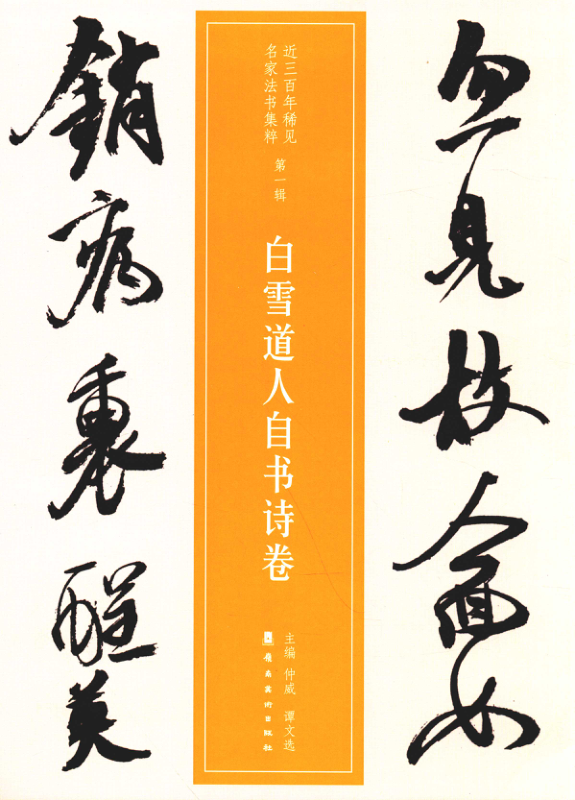 忽見故人面如
近三百年稀见
名家法书集粹
第一辑
白雪道人自书诗卷
主编 仲威 谭文选
岭南美术出版社
銷病裏酲